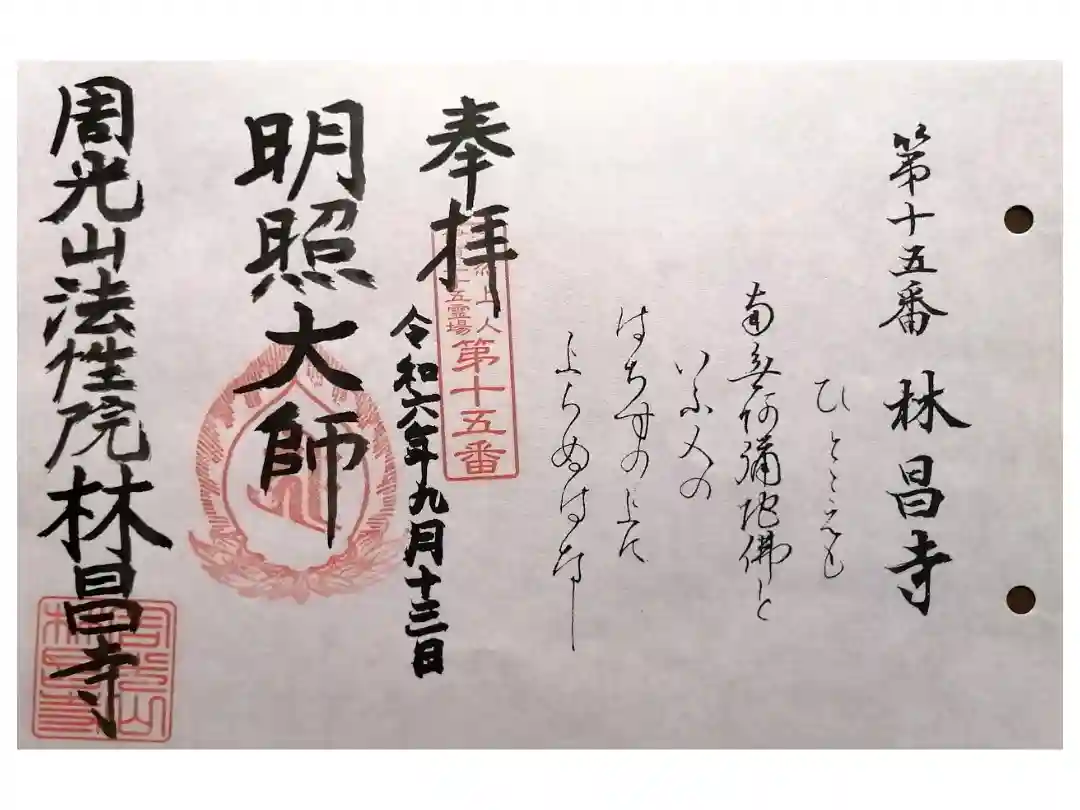 第十五番 林昌寺
ひとこゑも
南無阿彌陀佛と
いふ人の
はちすの上に
よらぬはなし
奉拝
上人
五霊場
第十五番
令和六年九月十三日
明照大師
周光山法性院林昌寺
周光山
林昌寺